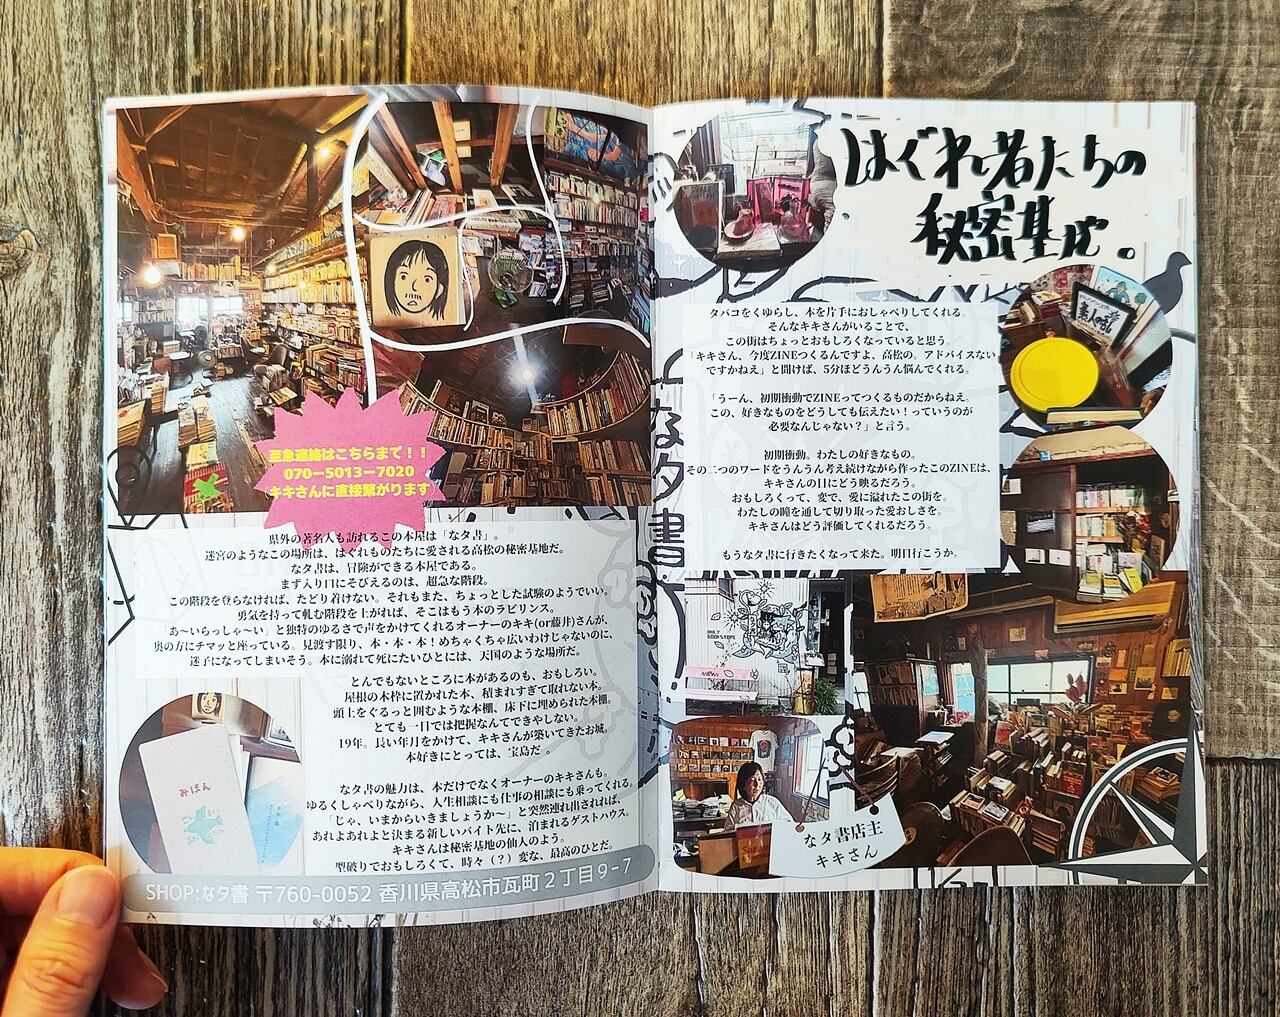 至急連絡はこちらまで！！
070ー5013ー7020
キキさんに直接繋がります
県外の著名人も訪れるこの本屋は「なタ書」。
迷宮のようなこの場所は、はぐれものたちに愛される高松の秘密基地だ。
なタ書は、冒険ができる本屋である。
まず入り口にそびえるのは、超急な階段。
この階段を登らなければ、たどり着けない。それもまた、ちょっとした試験のようでいい。
勇気を持って軋む階段を上がれば、そこはもう本のラビリンス。
「あ〜いらっしゃ〜い」と独特のゆるさで声をかけてくれるオーナーのキキ(or藤井)さんが、
奥の方にチマッと座っている。見渡す限り、本・本・本！めちゃくちゃ広いわけじゃないのに、
迷子になってしまいそう。本に溺れて死にたいひとには、天国のような場所だ。
とんでもないところに本があるのも、おもしろい。
屋根の木枠に置かれた本、積まれすぎて取れない本。
頭上をぐるっと囲むような本棚、床下に埋められた本棚。
とても一日では把握なんてできやしない。
19年。長い年月をかけて、キキさんが築いてきたお城。
本好きにとっては、宝島だ 。
なタ書の魅力は、本だけでなくオーナーのキキさんも。
ゆるくしゃべりながら、人生相談にも仕事の相談にも乗ってくれる。
「じゃ、いまからいきましょうか〜」と突然連れ出されれば、
あれよあれよと決まる新しいバイト先に、泊まれるゲストハウス。
キキさんは秘密基地の仙人のよう。
型破りでおもしろくて、時々（？）変な、最高のひとだ。
みほん
SHOP:なタ書 〒760-0052 香川県高松市瓦町２丁目９−７
なタ書
はぐれ者たちの
秘密基地。
タバコをくゆらし、本を片手におしゃべりしてくれる。
そんなキキさんがいることで、
この街はちょっとおもしろくなっていると思う。
「キキさん、今度ZINEつくるんですよ、高松の。アドバイスない
ですかねえ」と聞けば、5分ほどうんうん悩んでくれる。
「うーん、初期衝動でZINEってつくるものだからねえ。
この、好きなものをどうしても伝えたい！っていうのが
必要なんじゃない？」と言う。
初期衝動。わたしの好きなもの。
その二つのワードをうんうん考え続けながら作ったこのZINEは、
キキさんの目にどう映るだろう。
おもしろくって、変で、愛に溢れたこの街を。
わたしの瞳を通して切り取った愛おしさを。
キキさんはどう評価してくれるだろう。
もうなタ書に行きたくなって来た。明日行こうか。
ONLY
BOOKSTORE
なタ書店主
キキさん